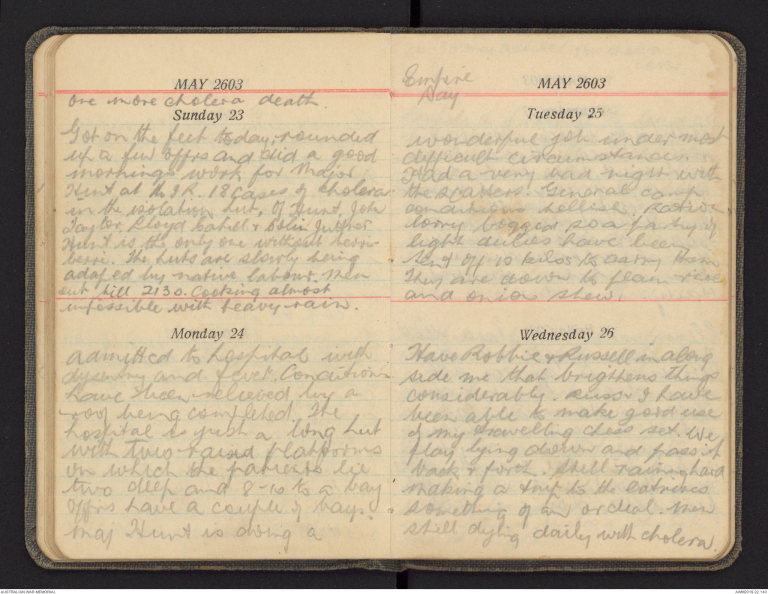 MAY 2603
one more cholera death
Sunday 23
Got on the feet today, rounded
up a few offrs and did a good
mornings work for Major
Hunt at the I.R. 18 Cases of cholera
in the isolation hut, Of Hunt, Joh
Taylor, Lloyd Cahill & Colin Juttner
Hunt is the only one without berri-
berri. The huts are slowly being
adaped by native labour. Men
out till 2130. Cooking almost
impossible with heavy rain.
Monday 24
admitted to hospital with
dysentry and fever. Conditions
have been relieved by a
roof being completed. The
hospital is just a long hut
with two raised platforms
on which the patients lie
two deep and 8-10 to a bay
Offrs have a couple of bays.
Maj Hunt is doing a
Empire
Day
MAY 2603
Tuesday 25
wonderful job under most
difficult circumstances.
Had a very bad night with
the scatters. General camp
conditions hellish, ration
lorry bogged so a party of
light duties have been
sent off 10 kilos to carry them
They are down to plain rice
and onion stew.
Wednesday 26
Have Robbie & Russell in along
side me that brightens things
considerably. Russ & I have
been able to make good use
of my travelling chess set. We
play lying down and pass it
back & forth. Still raining hard
making a trip to the latrines
something of an ordeal. Men
still dying daily with cholera
AUSTRALIAN WAR MEMORIAL